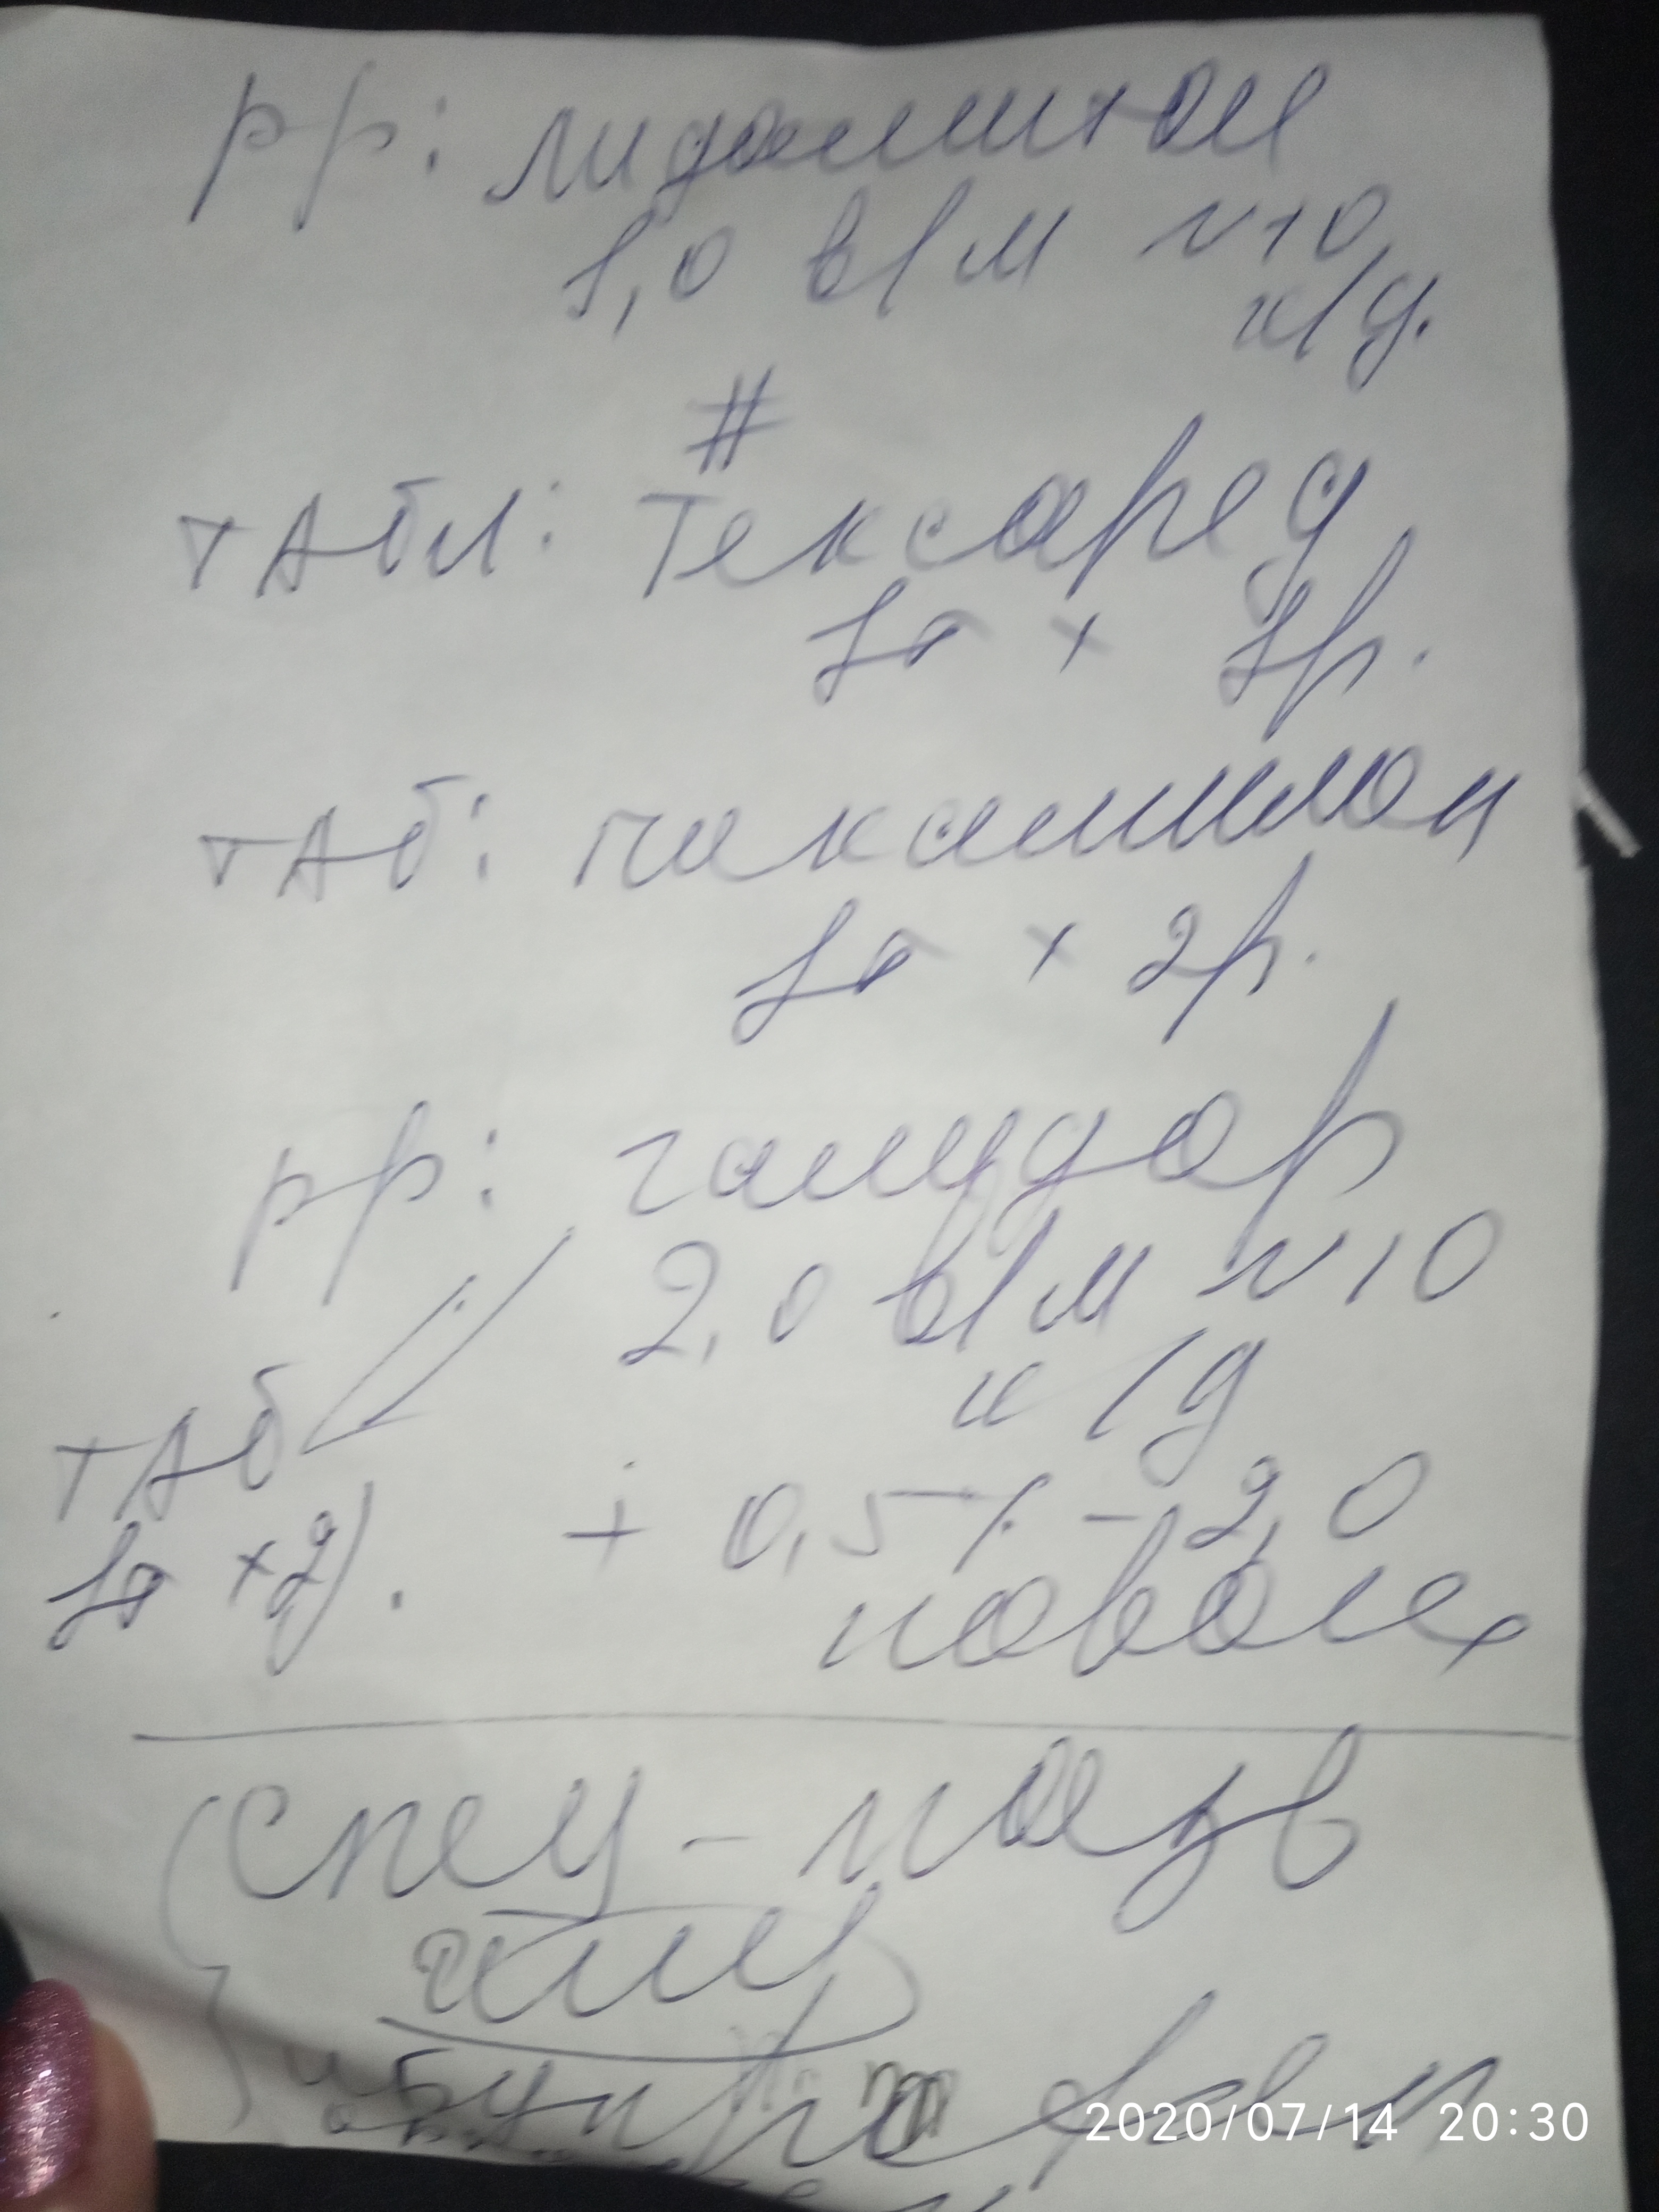 рр: мидокалм
1,0 в/м N10
н/д.
#
таbл: Тексаред
1т × 1р.
таб: пикамилон
1т × 2р.
рр: галидор
2,0 в/м N10
н/д
таб
1т × 2).
+ 0,5% - 2,0
новок.
Спец-мазь
ибупрофен
2020/07/14 20:30